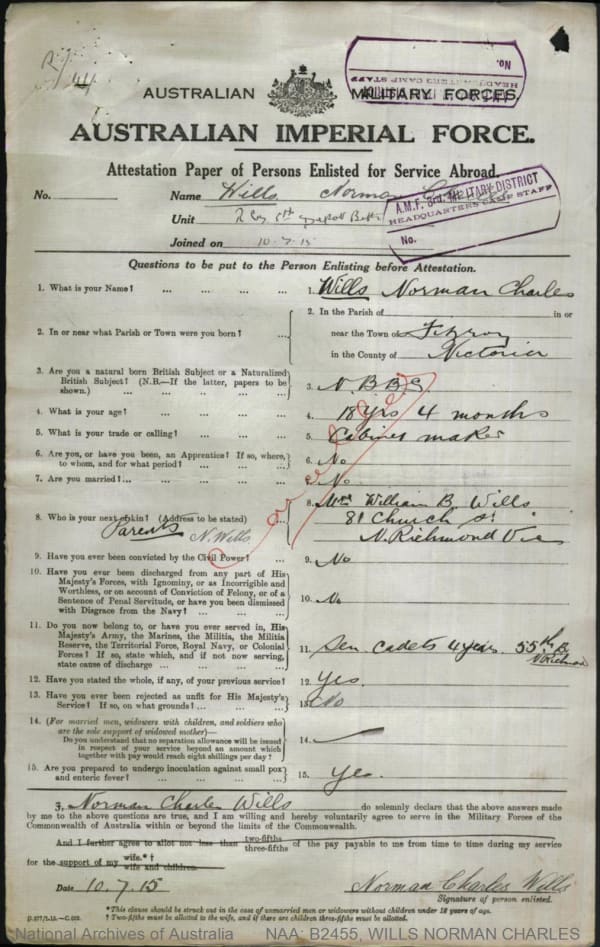 R/
44
No.
HEADQUARTERS CAMP STAFF
AUSTRALIAN MILITARY FORCES.
AUSTRALIAN IMPERIAL FORCE.
Attestation Paper of Persons Enlisted for Service Abroad.
No. Name Wills Norman Charles
A.M.F. 3rd MILITARY DISTRICT
HEADQUARTERS CAMP STAFF
No.
Unit 2 5th Battn
Joined on 10-7-15
Questions to be put to the Person Enlisting before Attestation.
1. What is your Name? ... ... ... ... 1. Wills Norman Charles
2. In or near what Parish or Town were you born? ... 2. In the Parish of in or
near the Town of Fitzroy
in the County of Victoria
3. Are you a natural born British Subject or a Naturalized
British Subject? (N.B.—If the latter, papers to be
shown.) ... ... ... ... 3. N. B B S
4. What is your age? ... ... ... ... 4. 18 yrs 4 months
5. What is your trade or calling? ... ... ... 5. Cabinet maker
6. Are you, or have you been, an Apprentice? If so, where,
to whom, and for what period? ... ... ... 6. No
7. Are you married? ... ... ... ... 7. No.
8. Who is your next of kin? (Address to be stated) ... 8. William B. Wills
Parents N. Wills 81 Church St
N. Richmond Vic
9. Have you ever been convicted by the Civil Power? ... 9. No
10. Have you ever been discharged from any part of His
Majesty's Forces, with Ignominy, or as Incorrigible and
Worthless, or on account of Conviction of Felony, or of a
Sentence of Penal Servitude, or have you been dismissed
with Disgrace from the Navy? ... ... ... 10. No
11. Do you now belong to, or have you ever served in, His
Majesty's Army, the Marines, the Militia, the Militia
Reserve, the Territorial Force, Royal Navy, or Colonial
Forces? If so, state which, and if not now serving,
state cause of discharge ... ... ... 11. Sen. Cadets 4 years. 55th B.
N. Richmond
12. Have you stated the whole, if any, of your previous service? 12. Yes.
13. Have you ever been rejected as unfit for His Majesty's
Service? If so, on what grounds? ... ... ... 13. No
14. (For married men, widowers with children, and soldiers who
are the sole support of widowed mother)—
Do you understand that no separation allowance will be issued
in respect of your service beyond an amount which
together with pay would reach eight shillings per day? 14. —
15. Are you prepared to undergo inoculation against small pox
and enteric fever? ... ... ... ... 15. Yes.
I, Norman Charles Wills do solemnly declare that the above answers made
by me to the above questions are true, and I am willing and hereby voluntarily agree to serve in the Military Forces of the
Commonwealth of Australia within or beyond the limits of the Commonwealth.
And I further agree to allot not less than two-fifths
three-fifths of the pay payable to me from time to time during my service
for the support of my wife.*†
wife and children.
Date 10.7.15 Norman Charles Wills
Signature of person enlisted.
*This clause should be struck out in the case of unmarried men or widowers without children under 18 years of age.
† Two-fifths must be allotted to the wife, and if there are children three-fifths must be allotted.
National Archives of Australia NAA: B2455, WILLS NORMAN CHARLES